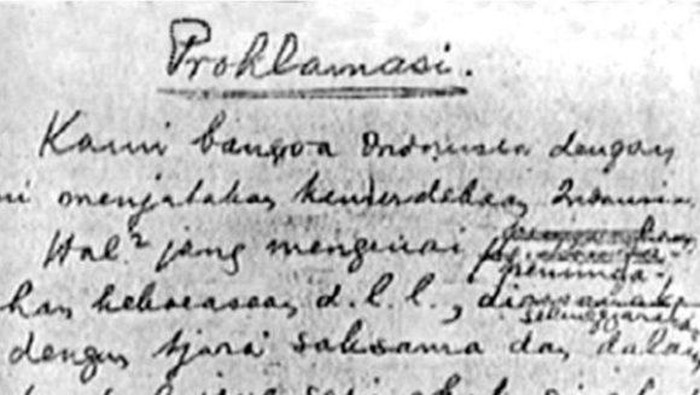 Proklamasi.
Kami bangsa Indonesia dengan
ni menjatakan kemerdekaan Indonesia.
Hal² jang mengenai
peminda-
han kekoeasaan d.l.l., di
selenggarakan
dengan tjara saksama dan dalam